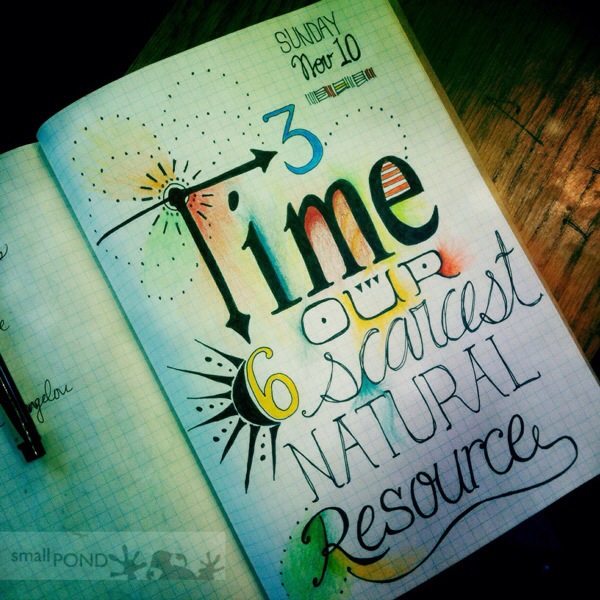 SUNDAY
Nov 10
3
Time
OUR
6
scarcest
NATURAL
Resource
ngelou
small POND